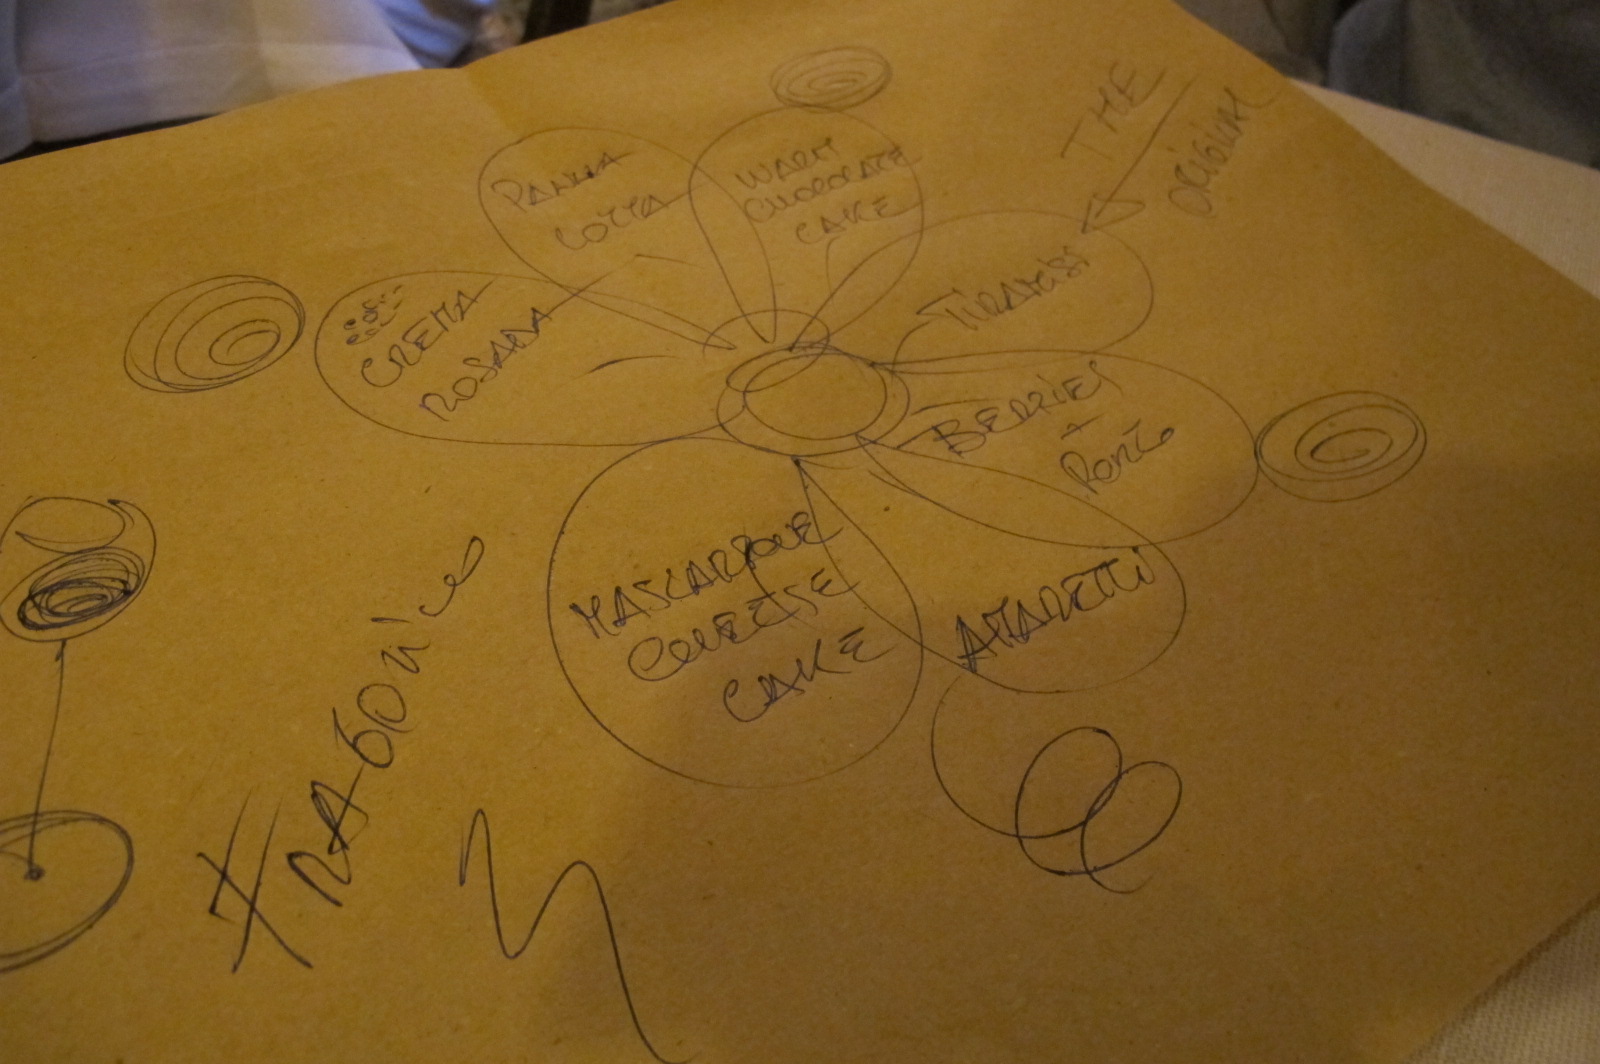 PANNA
COTTA
WARM
CHOCOLATE
CAKE
THE
ORIGINAL
TIRAMISÙ
CREMA
ROSADA
BERRIES
+
PORTO
MASCARPONE
CHEESE
CAKE
AMARETTI